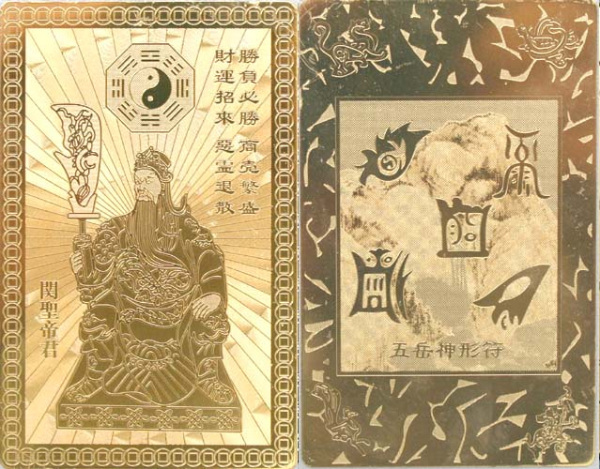 勝負必勝 商売繁盛
財運招來 悪霊退散
関聖帝君
五岳神形符